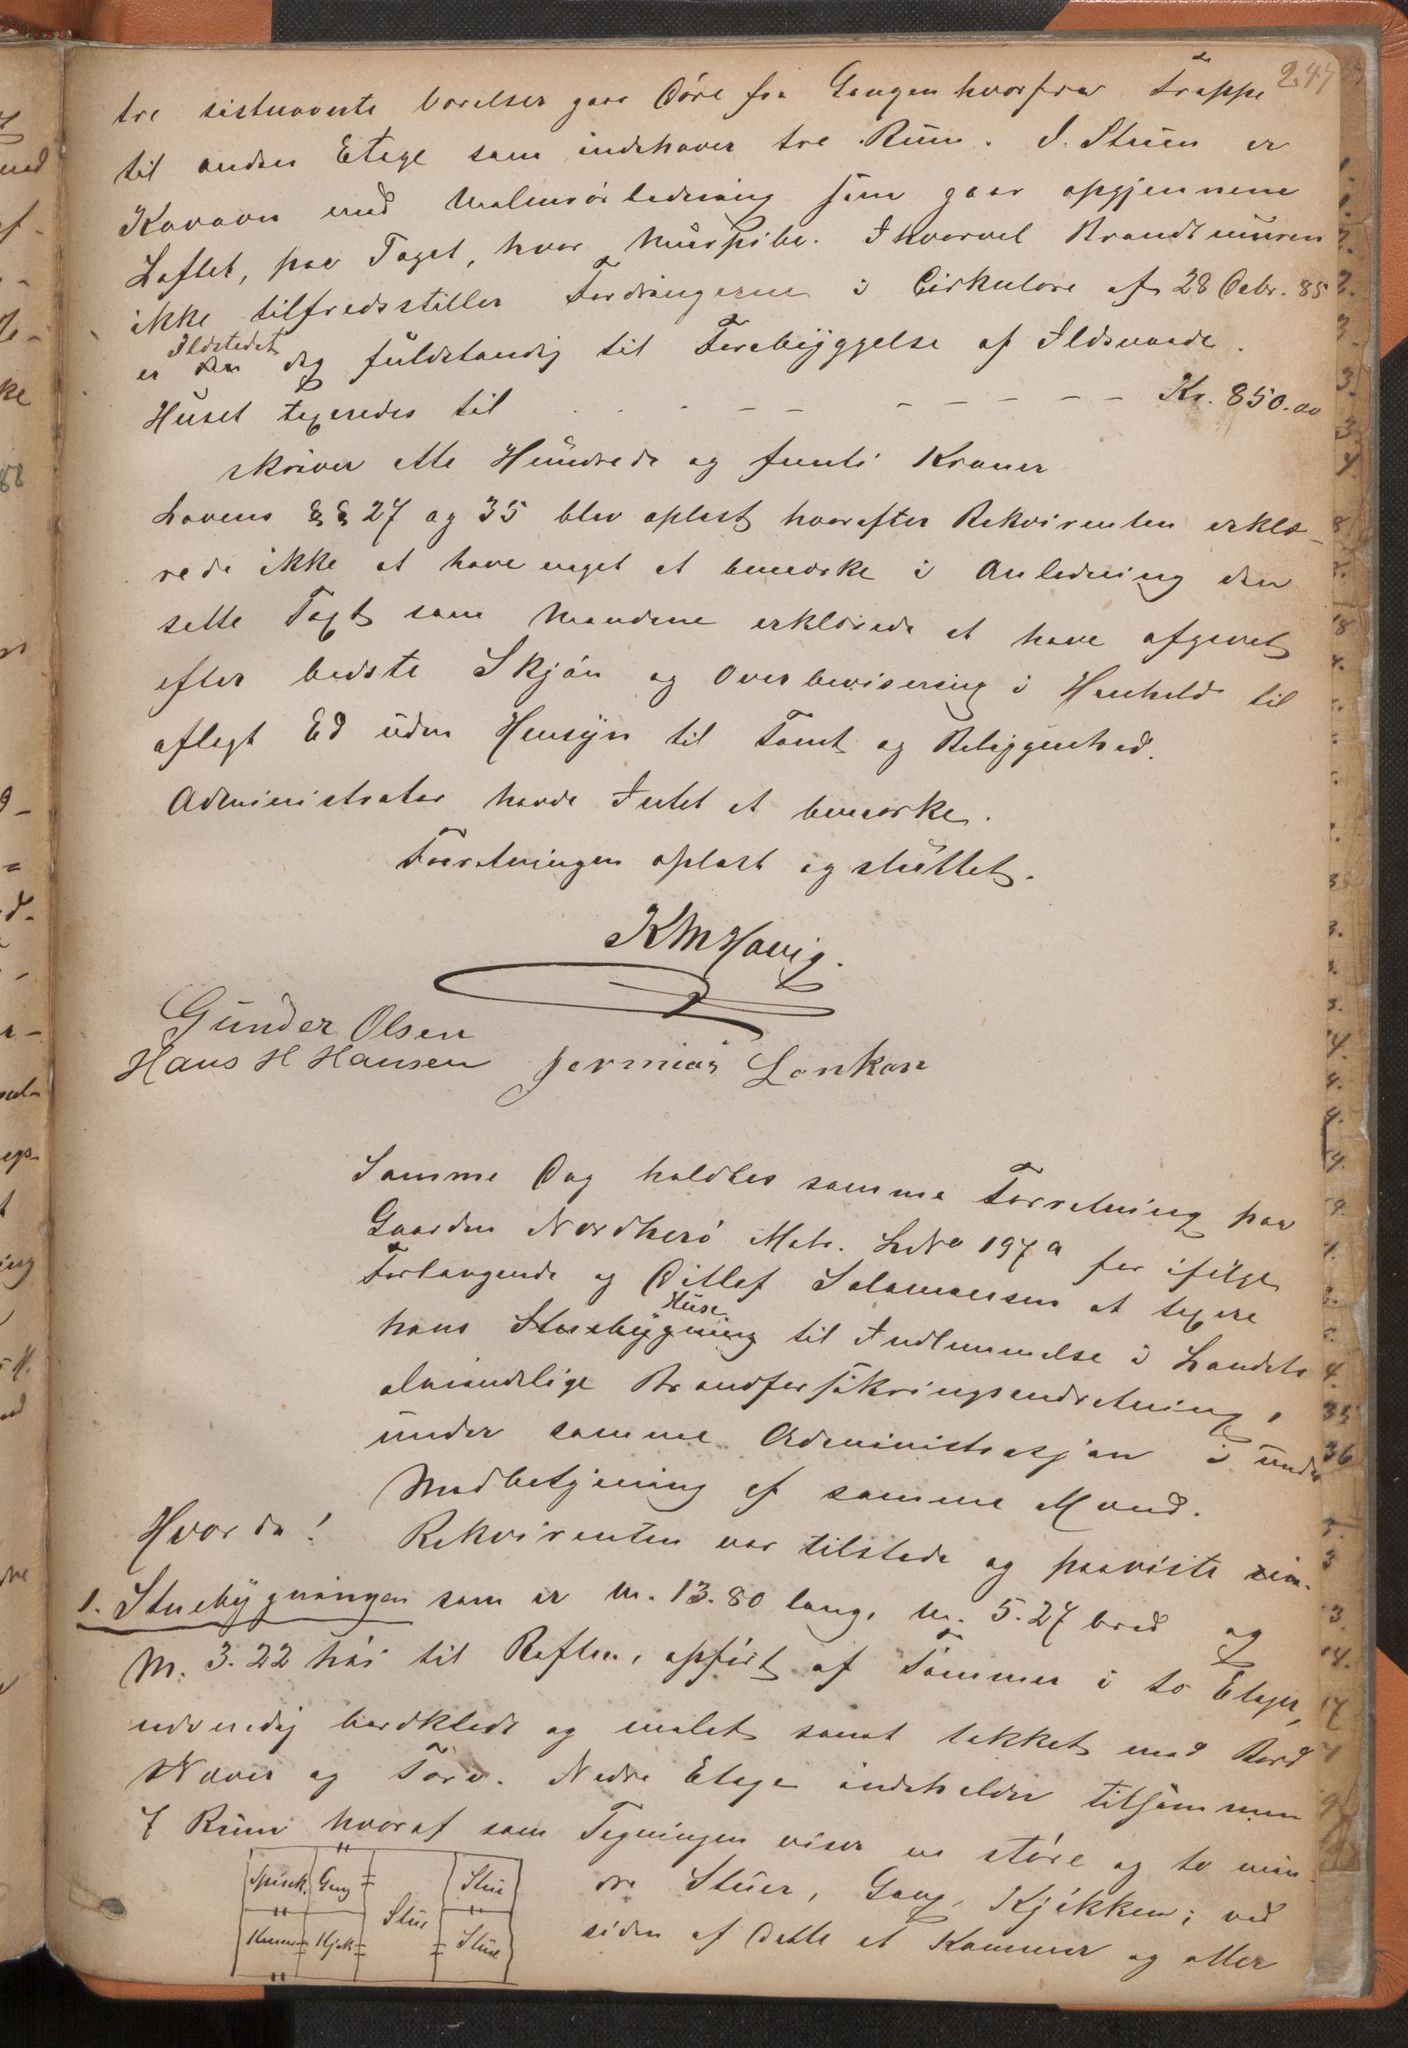 247
tre sistnævnte Værelser gaar Døre fra Gangen hvorfra Trappe
til anden Etage som indehaver tre Rum. I Stuen er
Kakovn med Malmrørledning som gaar opgjennem
Loftet, paa Taget, hvor Murpibe. Ihvorvel Brandmuren
ikke tilfredsstiller Fordringerne i Cirkulære af 28 Debr. 85
Ildstedet
er den dog fuldstændig til Forebyggelse af Ildsvaade.
Huset taxeredes til . . . - - - - - - - - Kr. 850.00
skriver otte Hundrede og femti Kroner
Lovens §§ 27 og 35 blev oplæst hvorefter Rekvirenten erklæ-
rede ikke at have noget at bemærke i Anledning den
satte Taxt som Mændene erklærede at have afgivet
efter bedste Skjøn og Overbevisning i Henhold til
aflagt Ed uden Hensyn til Tomt og Beliggenhed.
Administrator havde Intet at bemærke.
Forretningen oplæst og sluttet.
KMHavig.
Gunder Olsen
Hans H Hansen Jermias Lonkan
Samme Dag holdtes samme Forretning paa
Gaarden Nordherø Matr. LNo 197a for ifølge
Forlangende og Ditlef Salamonsen at taxere
Huse
hans Stuebygning til Indlemmelse i Landets
almindelige Brandforsikringsindretning,
under samme Administrasjon i under
Medbetjening af samme Mænd.
Hvorda! Rekvirenten var tilstede og paaviste sin
1. Stuebygningen som er M. 13.80 lang, M. 5.27 bred og
M. 3.22 høi til Raften, opført af Tømmer i to Etager,
udvendig bordklædt og malet samt tækket med Bord
Næver og Torv. Nedre Etage indeholder tilsammen
7 Rum hvoraf som Tegningen viser en støre og to min
dre Stuer, Gang, Kjøkken; ved
siden af dette et Kammer og atter
Spisek. Gang Stue Stue
Kammer Kjøk Stue